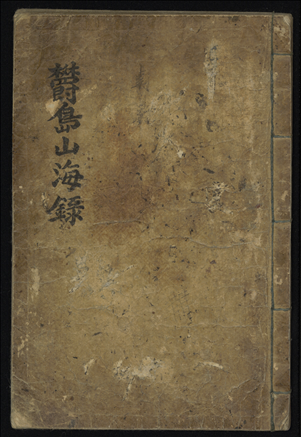 欝島山海録